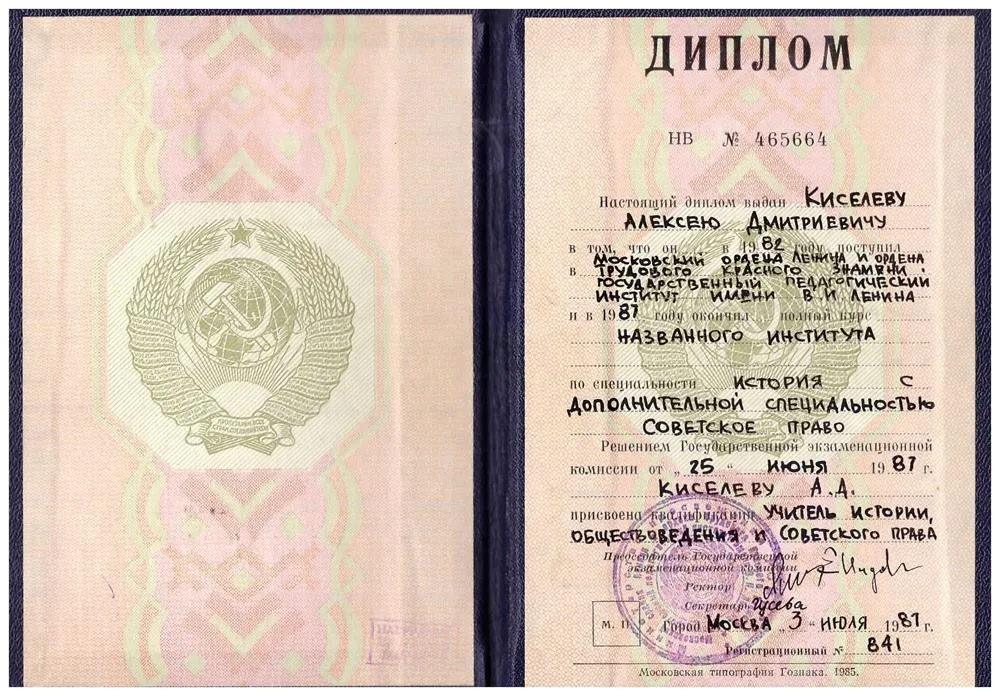 ПРОЛЕТАРИИ ВСЕХ
СТРАН, СОЕДИНЯЙТЕСЬ!
ДИПЛОМ
НВ № 465664
Настоящий диплом выдан КИСЕЛЕВУ
АЛЕКСЕЮ ДМИТРИЕВИЧУ
в том, что он в 1982 году поступил
в МОСКОВСКИЙ ОРДЕНА ЛЕНИНА И ОРДЕНА
ТРУДОВОГО КРАСНОГО ЗНАМЕНИ
ГОСУДАРСТВЕННЫЙ ПЕДАГОГИЧЕСКИЙ
ИНСТИТУТ ИМЕНИ В.И. ЛЕНИНА
и в 1987 году окончил полный курс
НАЗВАННОГО ИНСТИТУТА
по специальности ИСТОРИЯ С
ДОПОЛНИТЕЛЬНОЙ СПЕЦИАЛЬНОСТЬЮ
СОВЕТСКОЕ ПРАВО
Решением Государственной экзаменационной
комиссии от „25“ ИЮНЯ 1987 г.
КИСЕЛЕВУ А.Д.
присвоена квалификация УЧИТЕЛЬ ИСТОРИИ,
ОБЩЕСТВОВЕДЕНИЯ И СОВЕТСКОГО ПРАВА
Председатель Государственной
экзаменационной комиссии
Ректор
Секретарь Гусева
М. П. Город МОСКВА „3“ ИЮЛЯ 1987 г.
Регистрационный № 841
Московская типография Гознака. 1985.